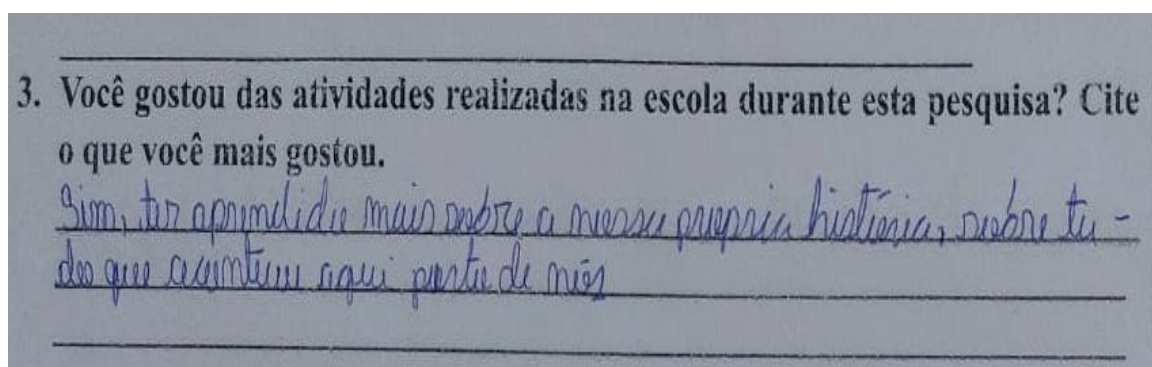 3. Você gostou das atividades realizadas na escola durante esta pesquisa? Cite
o que você mais gostou.
Sim, ter aprendido mais sobre a nossa propria história, sobre tu-
do que aconteceu aqui perto de nós